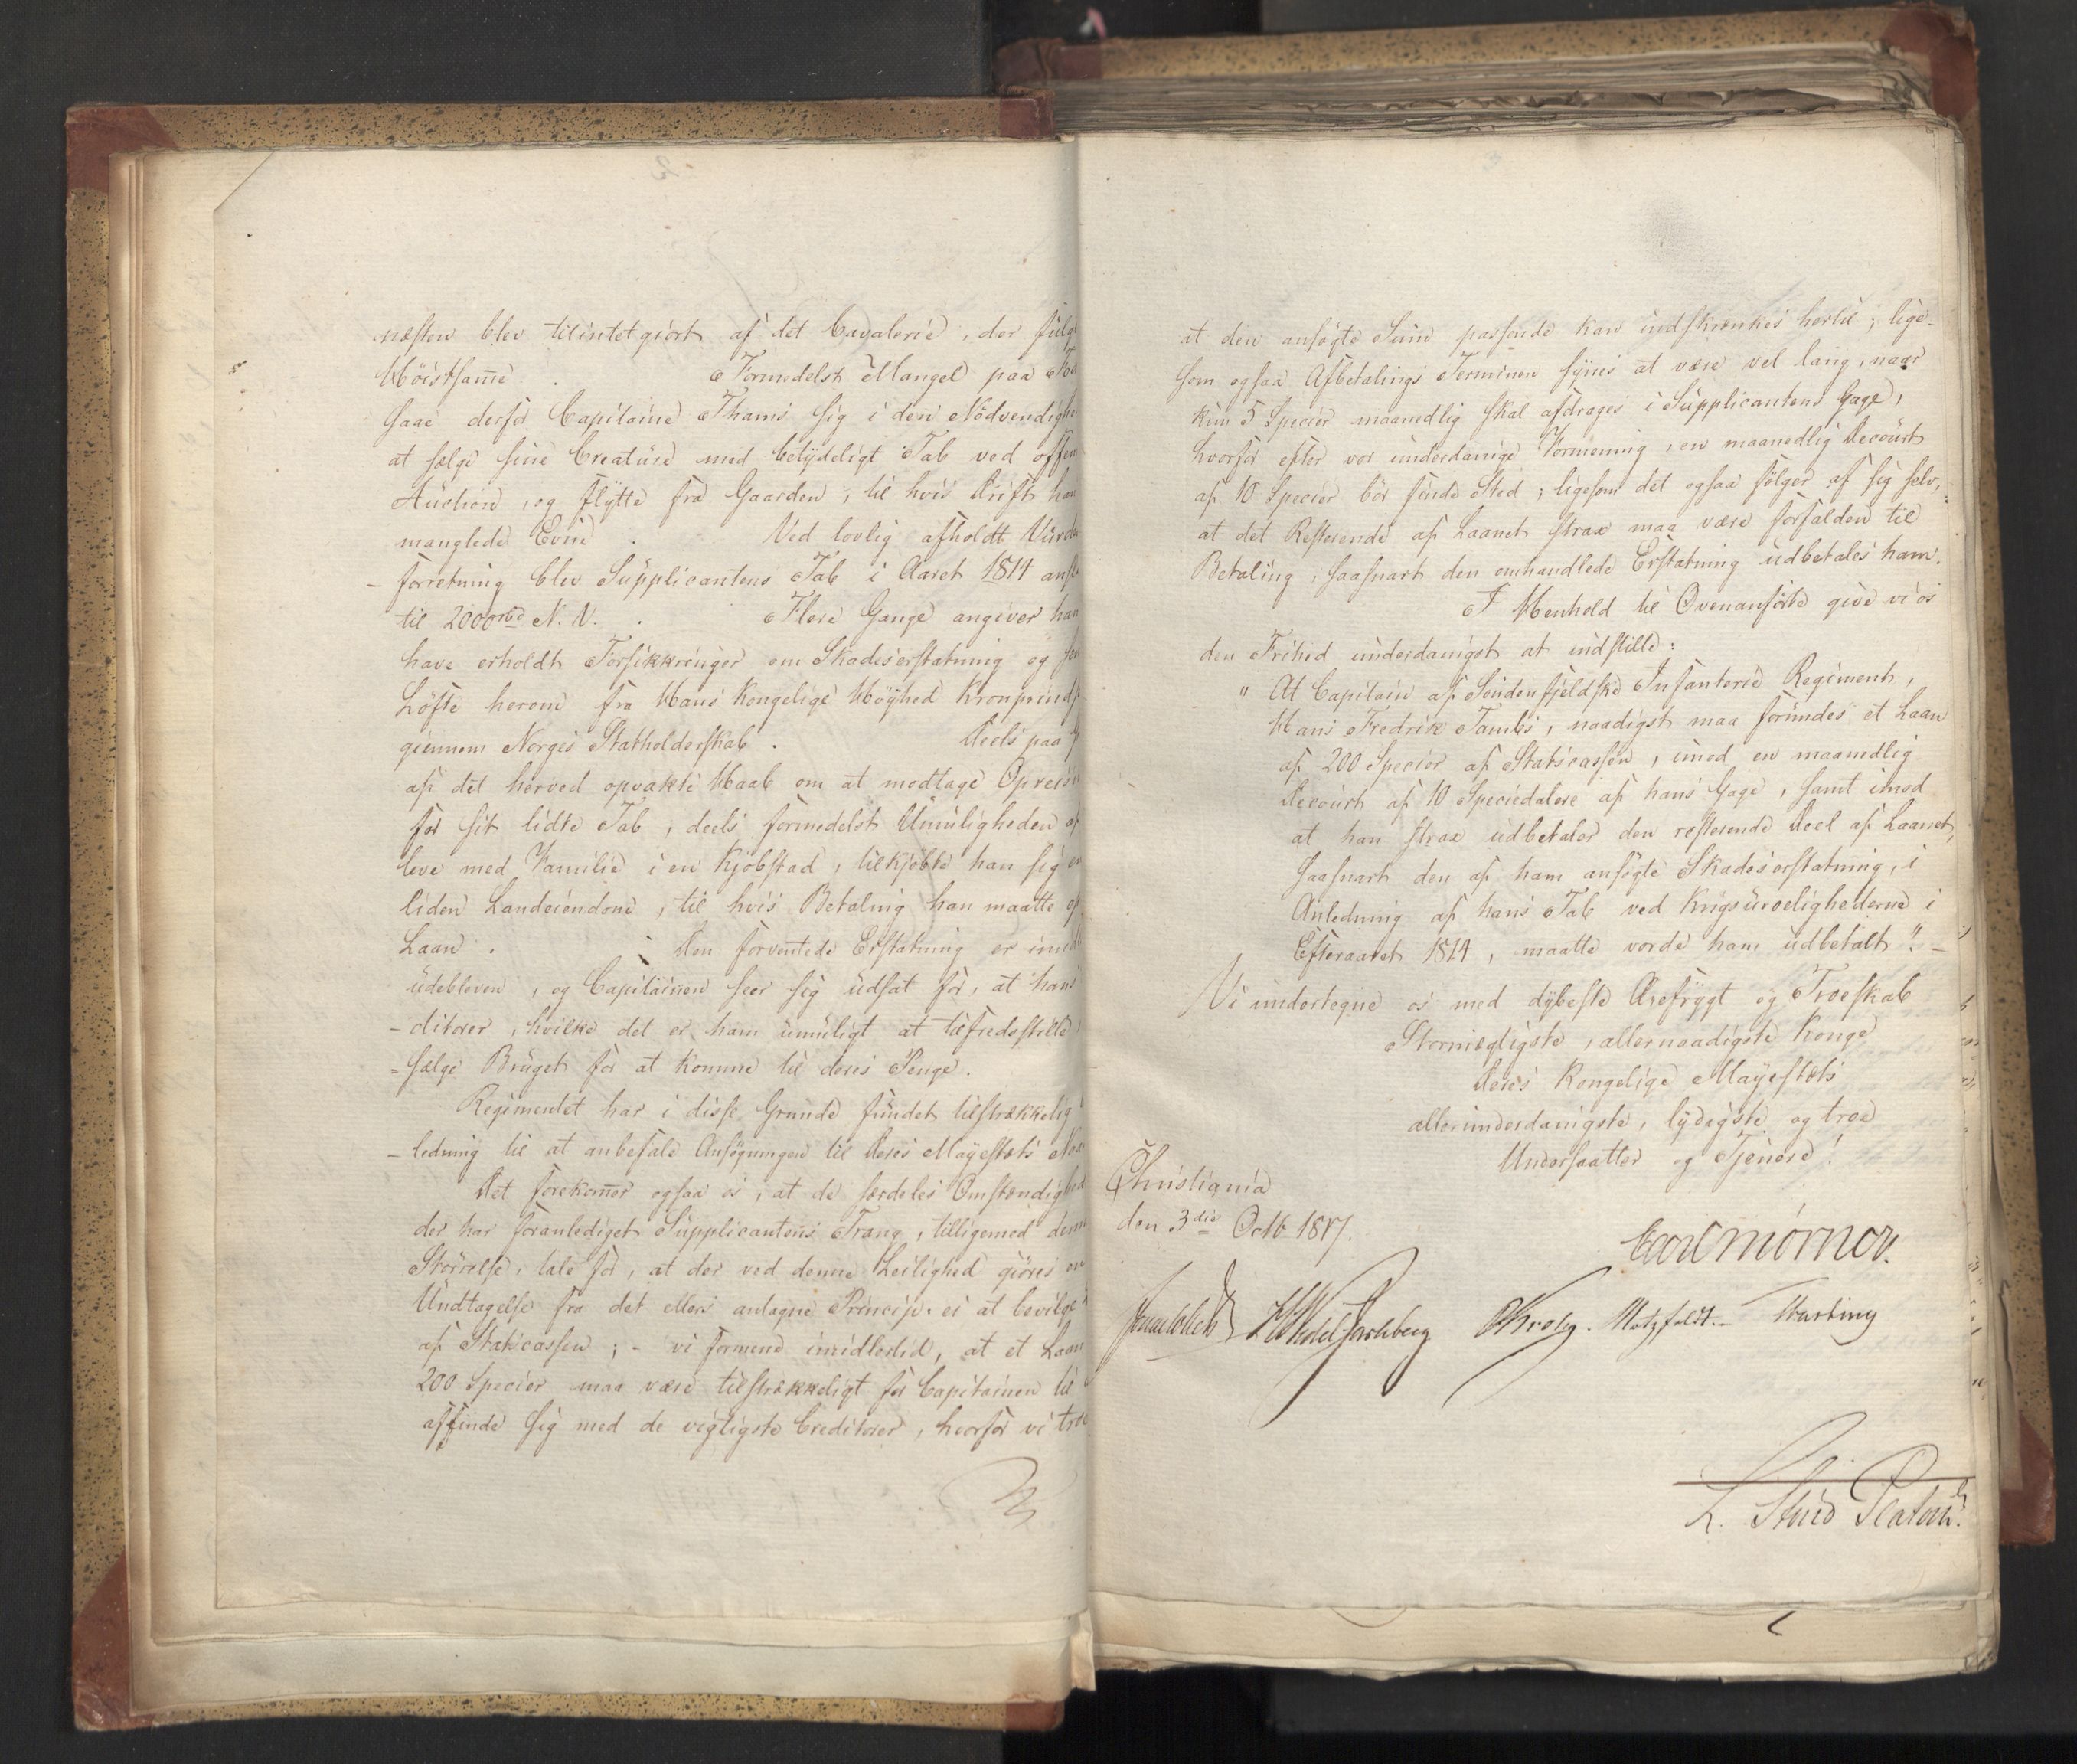 næsten blev tilintetgiort af det Cavalerie, der fulgt
Höistsam̄e. Formedelst Mangel paa
saae derfor Capitaine Thams sig i den Nödvendighe
at sælge sine Creature med betydeligt Tab ved offen
Auction, og flytte fra Gaarden, til hvis Drift han
manglede Evne. Ved lovlig afholdt Vurde
- forretning blev Supplicantens Tab i Aaret 1814 ansl
til 2000 rbd N. V. Flere Gange angiver han
have erholdt Forsikkringer om Skadeserstatning og
Löfte herom fra Hans Kongelige Höyhed Kronprinds
giennem Norges Statholderskab. Deels paa
af det herved opvakte Haab om at modtage Opreisn
for sit lidte Tab, deels formedelst Umuligheden af
leve med Familie i en Kjöbstad, tilkjöbte han sig en
liden Landeiendom, til hvis Betaling han maatte
Laan. Den forventede Erstatning er imidl
udebleven, og Capitainen seer sig udsat for, at hans
- ditorer, hvilke det er ham umuligt at tilfredsstille
- sælge Bruget for at komme til deres Penge.
Regimentet har i disse Grunde fundet tilstrækkelig
- ledning til at anbefale Ansögningen til Deres Mayestæts
Det forekom̄er ogsaa os, at de særdeles Omstændighed
der har foranlediget Supplicantens Trang, tilligemed denn
Störrelse, tale for, at der ved denne Leilighed giöres en
Undtagelse fra det ellers antagne Princip: ei at bevilge
af Statscassen; - vi formene imidlertid, at et Laan
200 Specier maa være tilstrækkeligt for Capitainen til
affinde sig med de vigtigste Creditorer, hvorfor vi troe
at den ansögte Sum passende kan indskrænkes hertil; lige-
som ogsaa Afbetalings Terminen synes at være vel lang, naar
kun 5 Specier maanedlig skal afdrages i Supplicantens Gage,
hvorfor efter vor underdanige Formening, en maanedlig Decourt
af 10 Specier bör finde Sted; ligesom det ogsaa fölger af sig selv,
at det Resterende af Laanet strax maa være forfalden til
Betaling, saasnart den omhandlede Erstatning udbetales ham.
I Henhold til Ovenanförte give vi os
den Frihed underdanigst at indstille:
" At Capitain af Söndenfjeldske Infanterie Regiment,
Hans Fredrik Tambs, naadigst maa forundes et Laan
af 200 Specier af Statscassen, imod en maanedlig
Decourt af 10 Speciedalere af hans Gage, samt imod
at han strax udbetaler den resterende Deel af Laanet,
saasnart den af ham ansögte Skadeserstatning, i
Anledning af hans Tab ved Krigsuroelighederne i
Efteraaret 1814, maatte vorde ham udbetalt". -
Vi undertegne os med dybeste Ærefrygt og Troeskab
Stormægtigste, allernaadigste Konge
Deres Kongelige Mayestæts
allerunderdanigste, lydigste og troe
Undersaatter og Tjenere!
Christiania
den 3die Octb. 1817.
Carl Mörner.
Sommerhielm HWedel Jarlsberg CKrohg. Motzfeldt. - Thårling
L. Stud Platou.